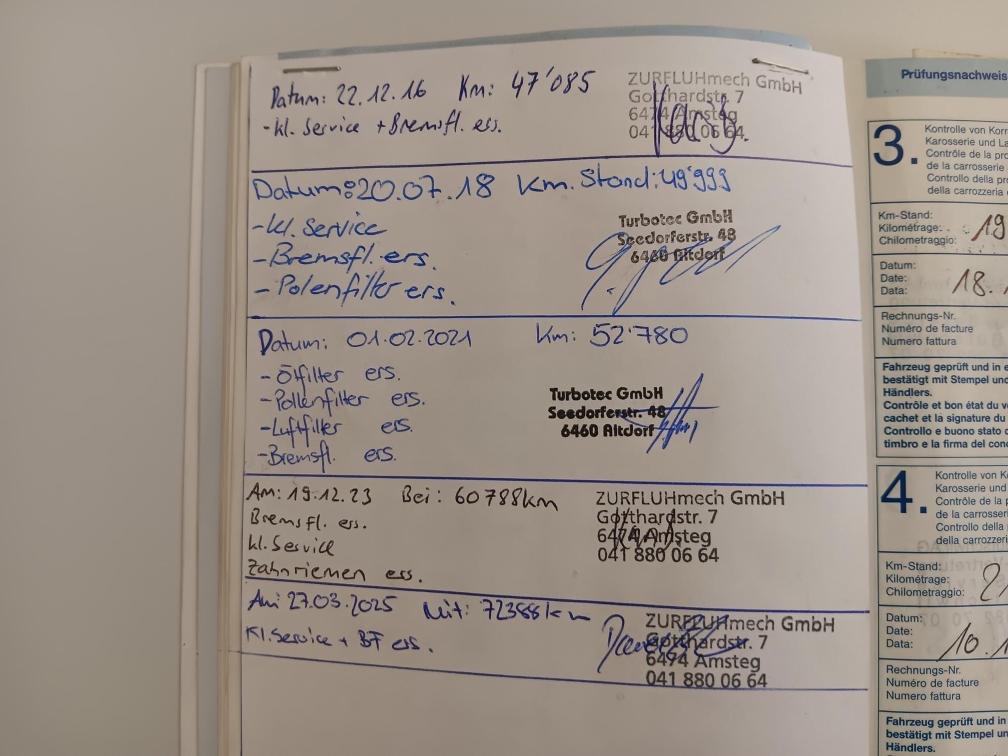 Datum: 22.12.16 Km: 47'085
- kl. Service + Bremsfl. ers.
ZURFLUHmech GmbH
Gotthardstr. 7
6474 Amsteg
041 880 06 64
Datum: 20.07.18 Km. Stand: 49'999
- Kl. Service
- Bremsfl. ers.
- Polenfilter ers.
Turbotec GmbH
Seedorferstr. 48
6460 Altdorf
Datum: 01.02.2021 Km: 52'780
- Ölfilter ers.
- Pollenfilter ers.
- Luftfilter ers.
- Bremsfl. ers.
Turbotec GmbH
Seedorferstr. 48
6460 Altdorf
Am: 19.12.23 Bei: 60788km
Bremsfl. ers.
kl. Service
Zahnriemen ers.
ZURFLUHmech GmbH
Gotthardstr. 7
6474 Amsteg
041 880 06 64
Am: 27.03.2025 Mit: 72388km
Kl. Service + BF ers.
ZURFLUHmech GmbH
Gotthardstr. 7
6474 Amsteg
041 880 06 64
Prüfungsnachweis
3.
Kontrolle von
Karosserie und
Contrôle de la
de la carrosserie
Controllo della
della carrozzeria
Km-Stand:
Kilométrage:
Chilometraggio:
19
Datum:
Date:
Data:
18.
Rechnungs-Nr.
Numéro de facture
Numero fattura
Fahrzeug geprüft und in
bestätigt mit Stempel
Händlers.
Contrôle et bon état du
cachet et la signature du
Controllo e buono stato
timbro e la firma del
4.
Kontrolle von
Karosserie und
Contrôle de la
de la carrosserie
Controllo della
della carrozzeria
Km-Stand:
Kilométrage:
Chilometraggio:
Datum:
Date:
Data:
10.
Rechnungs-Nr.
Numéro de facture
Numero fattura
Fahrzeug geprüft und in
bestätigt mit Stempel
Händlers.